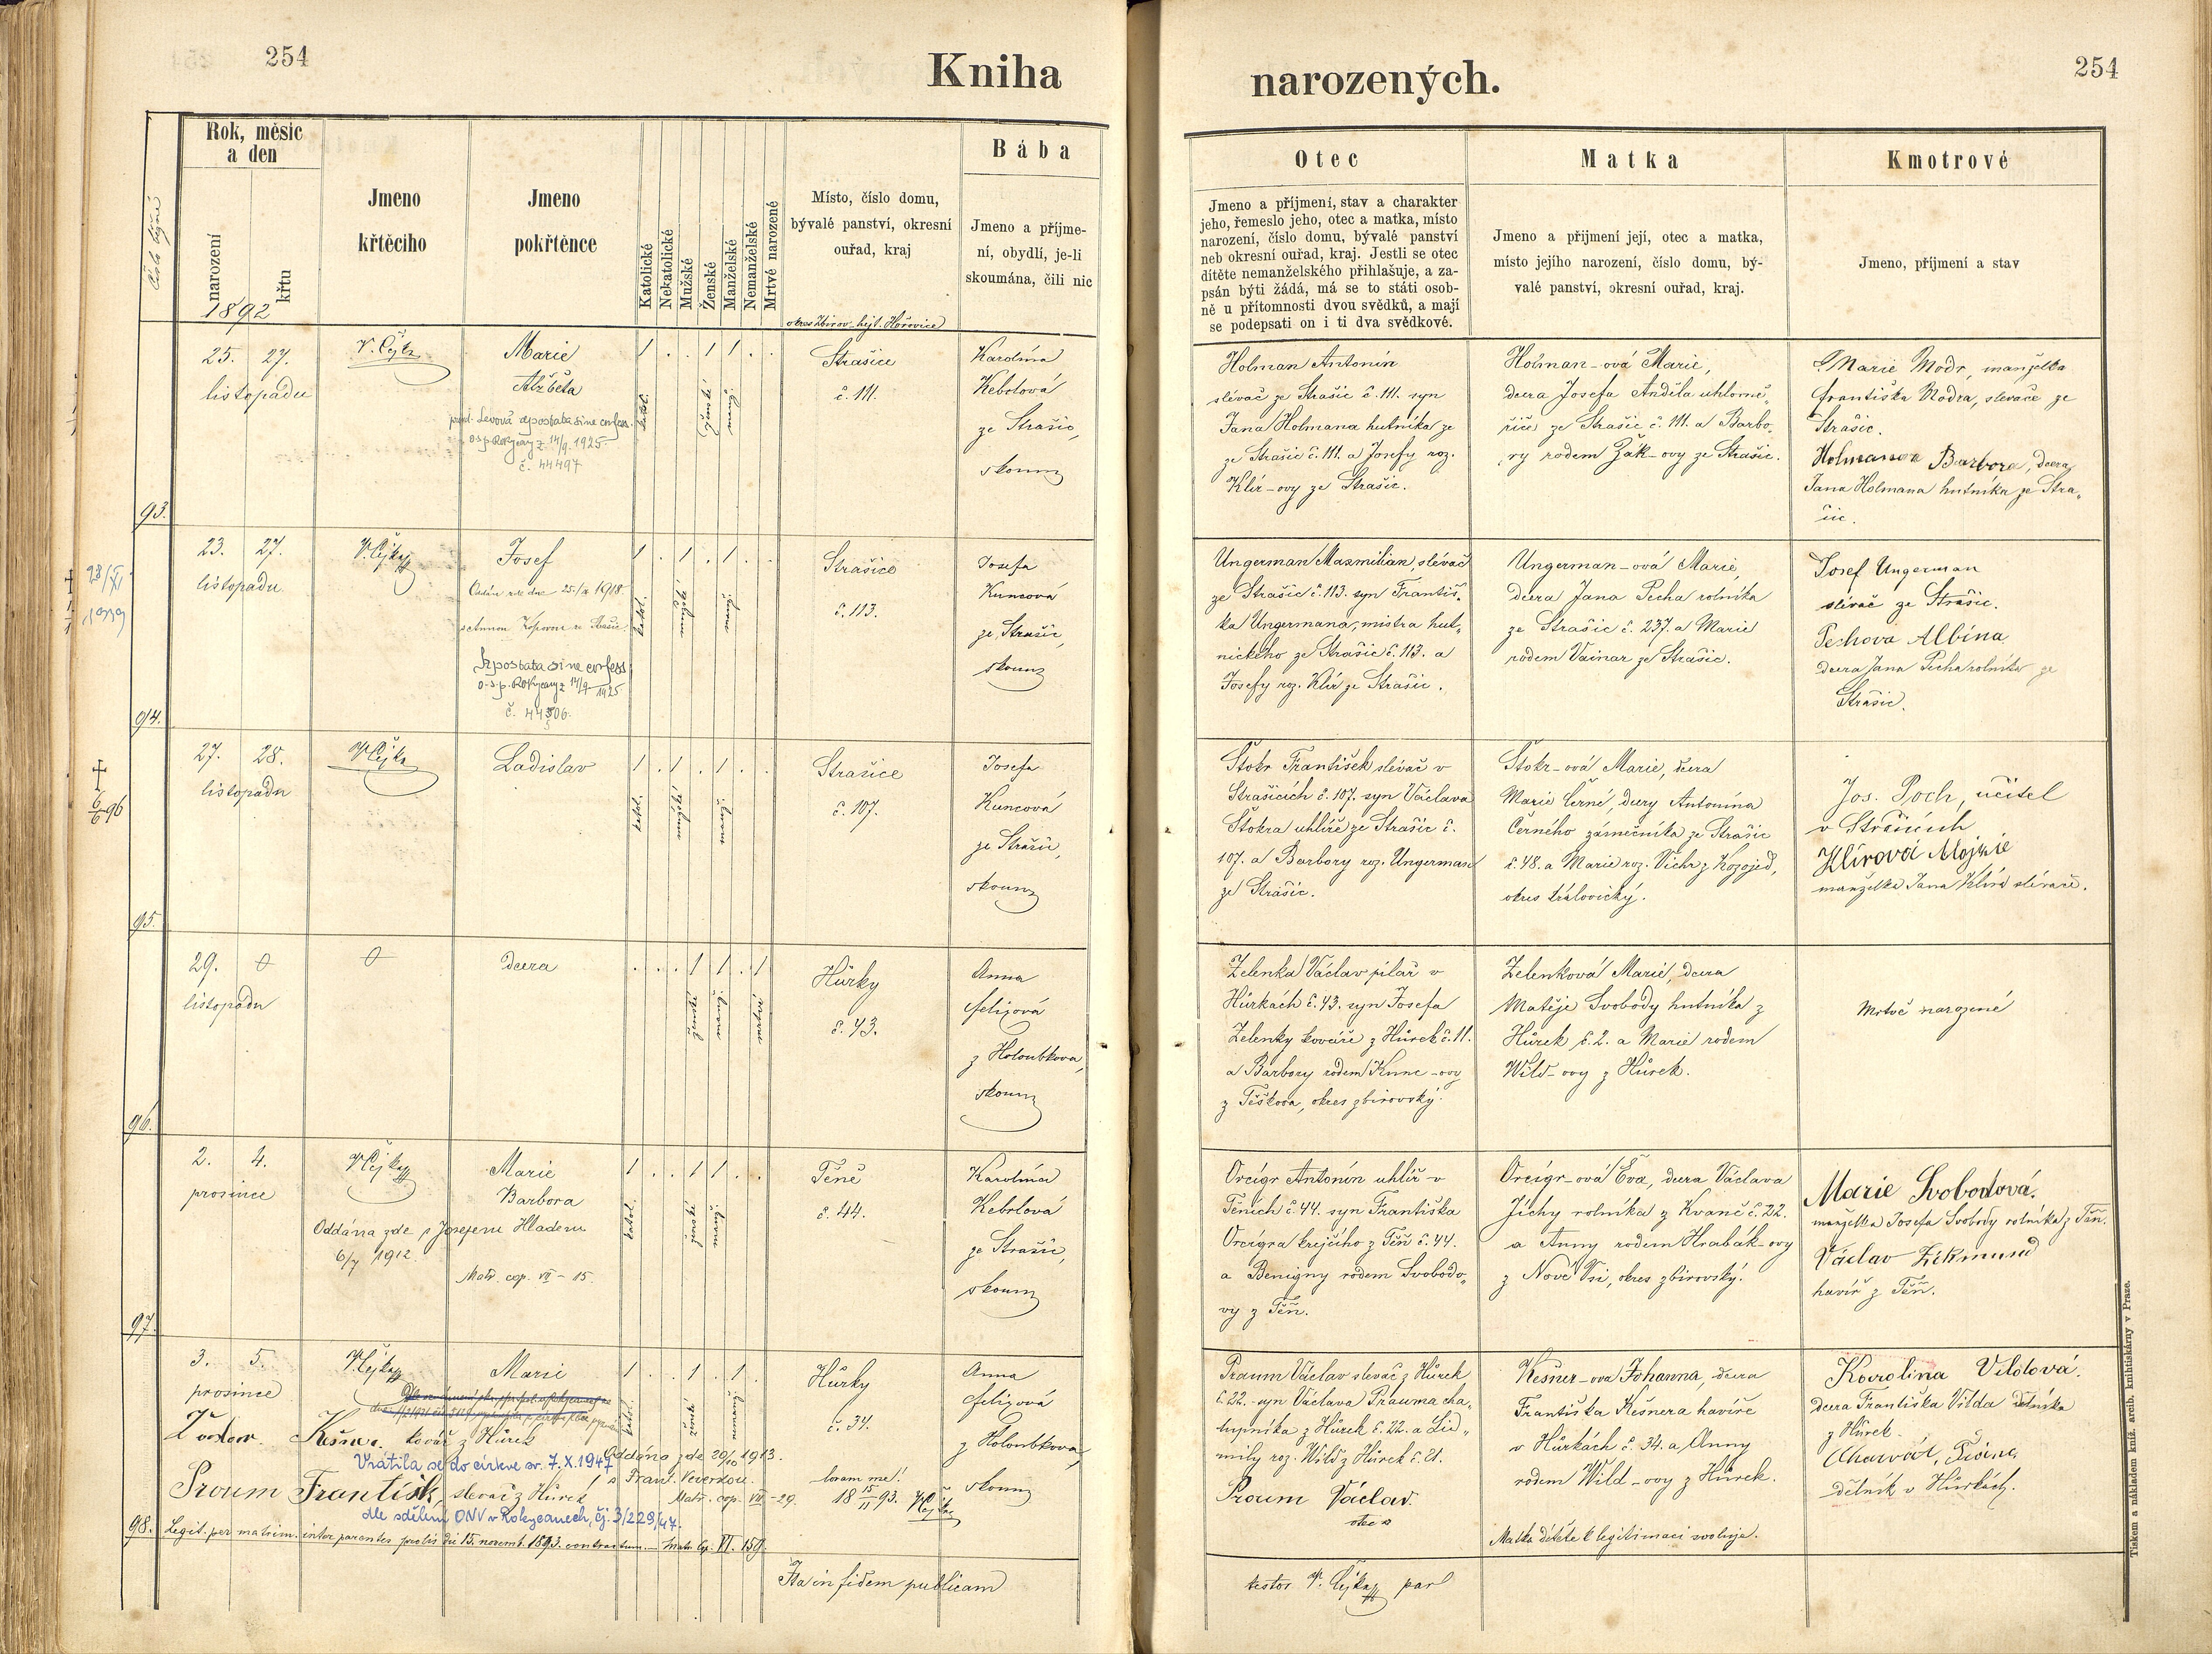 254
Kniha
narozených.
254
Číslo
Rok, měsíc
a den
narození
křtu
1892
Jmeno
křtěcího
Jmeno
pokřtěnce
Katolické
Nekatolické
Mužské
Ženské
Manželské
Nemanželské
Mrtvé narozené
Místo, číslo domu,
bývalé panství, okresní
ouřad, kraj
okres Zbirov hejt. Hořovice
Bába
Jmeno a příjme-
ní, obydlí, je-li
skoumána, čili nic
Otec
Jmeno a příjmení, stav a charakter
jeho, řemeslo jeho, otec a matka, místo
narození, číslo domu, bývalé panství
neb okresní ouřad, kraj. Jestli se otec
dítěte nemanželského přihlašuje, a za-
psán býti žádá, má se to státi osob-
ně u přítomnosti dvou svědků, a mají
se podepsati on i ti dva svědkové.
Matka
Jmeno a přijmení její, otec a matka,
místo jejího narození, číslo domu, bý-
valé panství, okresní ouřad, kraj.
Kmotrové
Jmeno, příjmení a stav
93.
25. 27.
listopadu
V. Čejka
Marie
Alžběta
provd. Levová apostata sine confess.
osp. Rokycany z 14/9. 1925.
č. 44497
1 . . 1 1 . .
katol.
Strašice
č. 111.
Karolína
Kebrlová
ze Strašic,
skoum
Holman Antonín
slévač ze Strašic č. 111. syn
Jana Holmana hutníka ze
ze Strašic č. 111. a Josefy roz.
Klír-ovy ze Strašic.
Holman-ová Marie,
dcera Josefa Anděla
ze Strašic č. 111. a Barbo-
ry rodem Žák-ovy ze Strašic.
Marie Modr, manželka
Františka Modra, slevače ze
Strašic.
Holmanova Barbora, dcera
Jana Holmana hutníka ze Stra„
šic.
94.
23. 27.
listopadu
V. Čejka
Josef
Oddán zde dne 25/2 1918.
s Annou ze Strašic.
Apostata sine confess
o.s.p. Rokycany z 14/9 1925
č. 44506.
1 . 1 . 1 . .
katol.
Strašice
č. 113.
Josefa
Kuncová
ze Strašic,
skoum
Ungerman Maxmilian, slévač
ze Strašic č. 113. syn Františ„
ka Ungermana, mistra hut„
nického ze Strašic č. 113. a
Josefy roz. Klír ze Strašic.
Ungerman-ová Marie,
dcera Jana Pecha rolníka
ze Strašic č. 237. a Marie
rodem Vainar ze Strašic.
Josef Ungerman
slévač ze Strašic.
Pechova Albína
dcera Jana Pecha rolníka ze
Strašic.
95.
6/6 96
27. 28.
listopadu
V. Čejka
Ladislav
1 . 1 . 1 . .
katol.
Strašice
č. 107.
Josefa
Kuncová
ze Strašic,
skoum
Štokr František slévač v
Strašicích č. 107. syn Václava
Štokra uhlíře ze Strašic č.
107. a Barbory roz. Ungerman
ze Strašic.
Štokr-ová Marie, dcera
Marie Černé, dcery Antonína
Černého zámečníka ze Strašic
č. 48. a Marie roz. Vichr z Kozojed,
okres královický.
Jos. Poch, učitel
v Strašicích
Klírová
manželka Jana Klíra slévače.
96.
29. 0
listopadu
0
dcera
. . . 1 1 . 1
Hůrky
č. 43.
Anna
Felixová
z Holoubkova,
skoum
Zelenka Václav pilař v
Hůrkách č. 43. syn Josefa
Zelenky kováře z Hůrek č. 11.
a Barbory rodem Kunc-ovy
z Těškova, okres zbirovský.
Zelenková Marie, dcera
Matěje Svobody hutníka z
Hůrek č. 2. a Marie rodem
Wild-ovy z Hůrek.
Mrtvě narozené
97.
2. 4.
prosince
V. Čejka
Marie
Barbora
Oddána zde s Josefem Hladem
6/7 1912.
Matr. cop. VII - 15.
1 . . 1 1 . .
katol.
Těně
č. 44.
Karolína
Kebrlová
ze Strašic,
skoum
Orcígr Antonín uhlíř v
Těních č. 44. syn Františka
Orcígra krejčího z Těň č. 44.
a Benigny rodem Svobodo„
vy z Těň.
Orcígr-ová Eva, dcera Václava
Jíchy rolníka z Kvaně č. 22.
a Anny rodem Hrabák-ovy
z Nové Vsi, okres zbirovský.
Marie Svobodová.
manželka Josefa Svobody rolníka z Těň.
Václav Zikmund
havíř z Těň.
98.
3. 5.
prosince
V. Čejka
Marie
1 . . 1 . 1 .
katol.
Kešner. kovář z Hůrek
Oddána zde 29/10 1913.
s Frant. Veverkou.
Matr. cop. VII - 29.
Vrátila se do církve sv. 7. X. 1947
Proum František, slevač z Hůrek
dle sdělení ONV v Rokycanech, čj. 3/229/47.
Legit. per matrim. inter parentes prolis die 15. novemb. 1893. contractum. - Matr. cop. VI. 159.
Hůrky
č. 34.
coram me!
18 15/11 93. V. Čejka
Anna
Felixová
z Holoubkova,
skoum
Praum Václav slevač z Hůrek
č. 22. - syn Václava Prauma cha„
lupníka z Hůrek č. 22. a Lid„
mily roz. Wild z Hůrek č. 21.
Proum Václav.
otec
Kešner-ova Johanna, dcera
Františka Kešnera havíře
v Hůrkách č. 34. a Anny
rodem Wild-ovy z Hůrek.
Matka dítěte k legitimaci svoluje.
Karolina Vildová.
dcera Františka Vilda dělníka
z Hůrek.
dělník v Hůrkách.
Ita in fidem publicam
testor V. Čejka par
Tiskem a nákladem kníž. arcib. knihtiskárny v Praze.